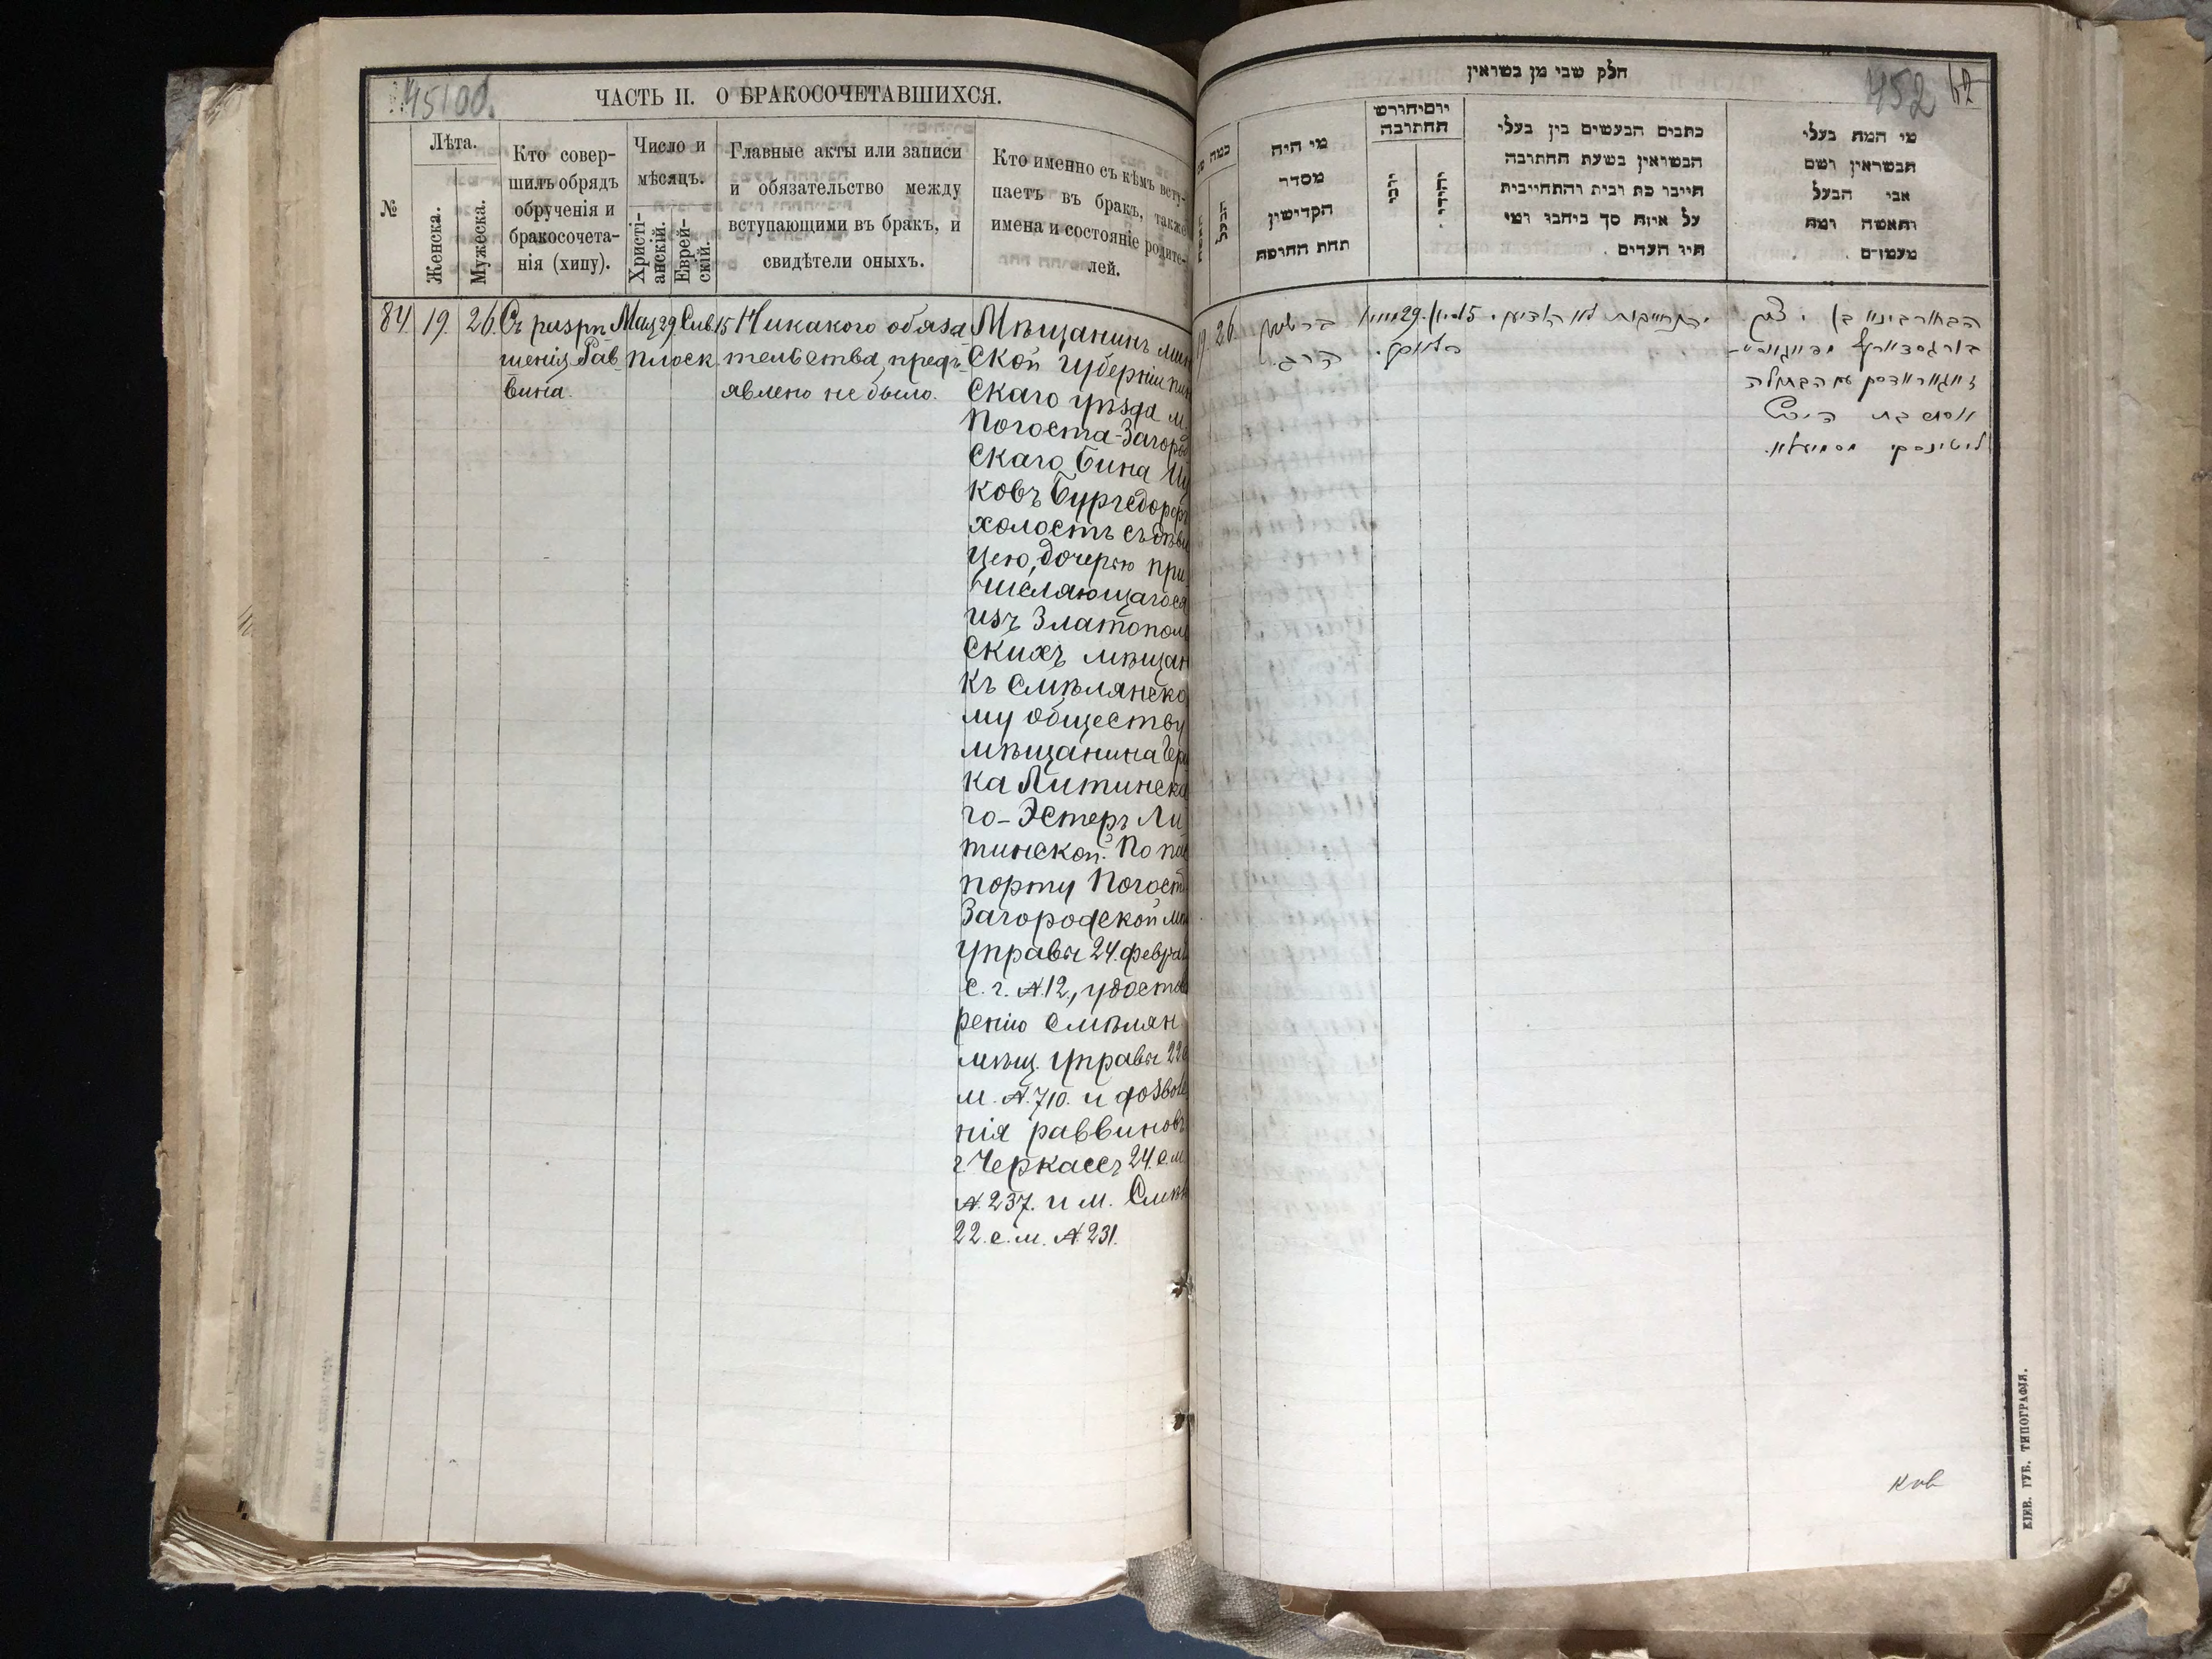 45100.
ЧАСТЬ II. О БРАКОСОЧЕТАВШИХСЯ.
№
Лѣта.
Женска.
Мужеска.
Кто совер-
шилъ обрядъ
обрученія и
бракосочета-
нія (хипу).
Число и
мѣсяцъ.
Христі-
анскій.
Еврей-
скій.
Главные акты или записи
и обязательство между
вступающими въ бракъ, и
свидѣтели оныхъ.
Кто именно съ кѣмъ всту-
паетъ въ бракъ, также
имена и состояніе родите-
лей.
84. 19. 26.
Съ разрѣ
шенія Рав
вина.
Мая 29 Сив. 15
Плоск.
Никакого обяза
тельства предъ-
явлено не было.
Мѣщанинъ мин
ской губерніи пин
скаго уѣзда м.
Погоста-Загород
скаго Бина Иц
ковъ Бургедорфъ
холостъ съ дѣви
цею, дочерью при
числяющагося
изъ Златополь
скихъ мѣщан
къ Смѣлянско
му обществу
мѣщанина Гер
ка Литинска
го - Эстеръ Ли
тинской. По пас
порту Погост
Загородской мѣщ
управы 24 февраля
с. г. № 12, удосто
ренію Смѣлян
мѣщ. управы 22 с
м. № 710. и дозволе
нія раввиновъ
г. Черкассъ 24 с. м
№ 237. и м. Смѣл
22. с. м. № 231.
452
62
חלק שני מן נשואין
כמה
הבעל
מי היה
מסדר
הקדישין
תחת החופה
יום וחודש
החתונה
כתבים הנעשים בין בעלי
הנשואין בשעת החתונה
חייבו כת ובית והתחייבות
על איזה סך ביחבו ומי
היו העדים .
מי המה בעלי
הנשואין ושם
אבי הבעל
והאשה ומה
מעמדם .
19. 26.
הרב.
29
15
הבחור בינא בן
עם הבתולה
אסתר בת
ליטינסקי
КІЕВ. ГУБ. ТИПОГРАФІЯ.